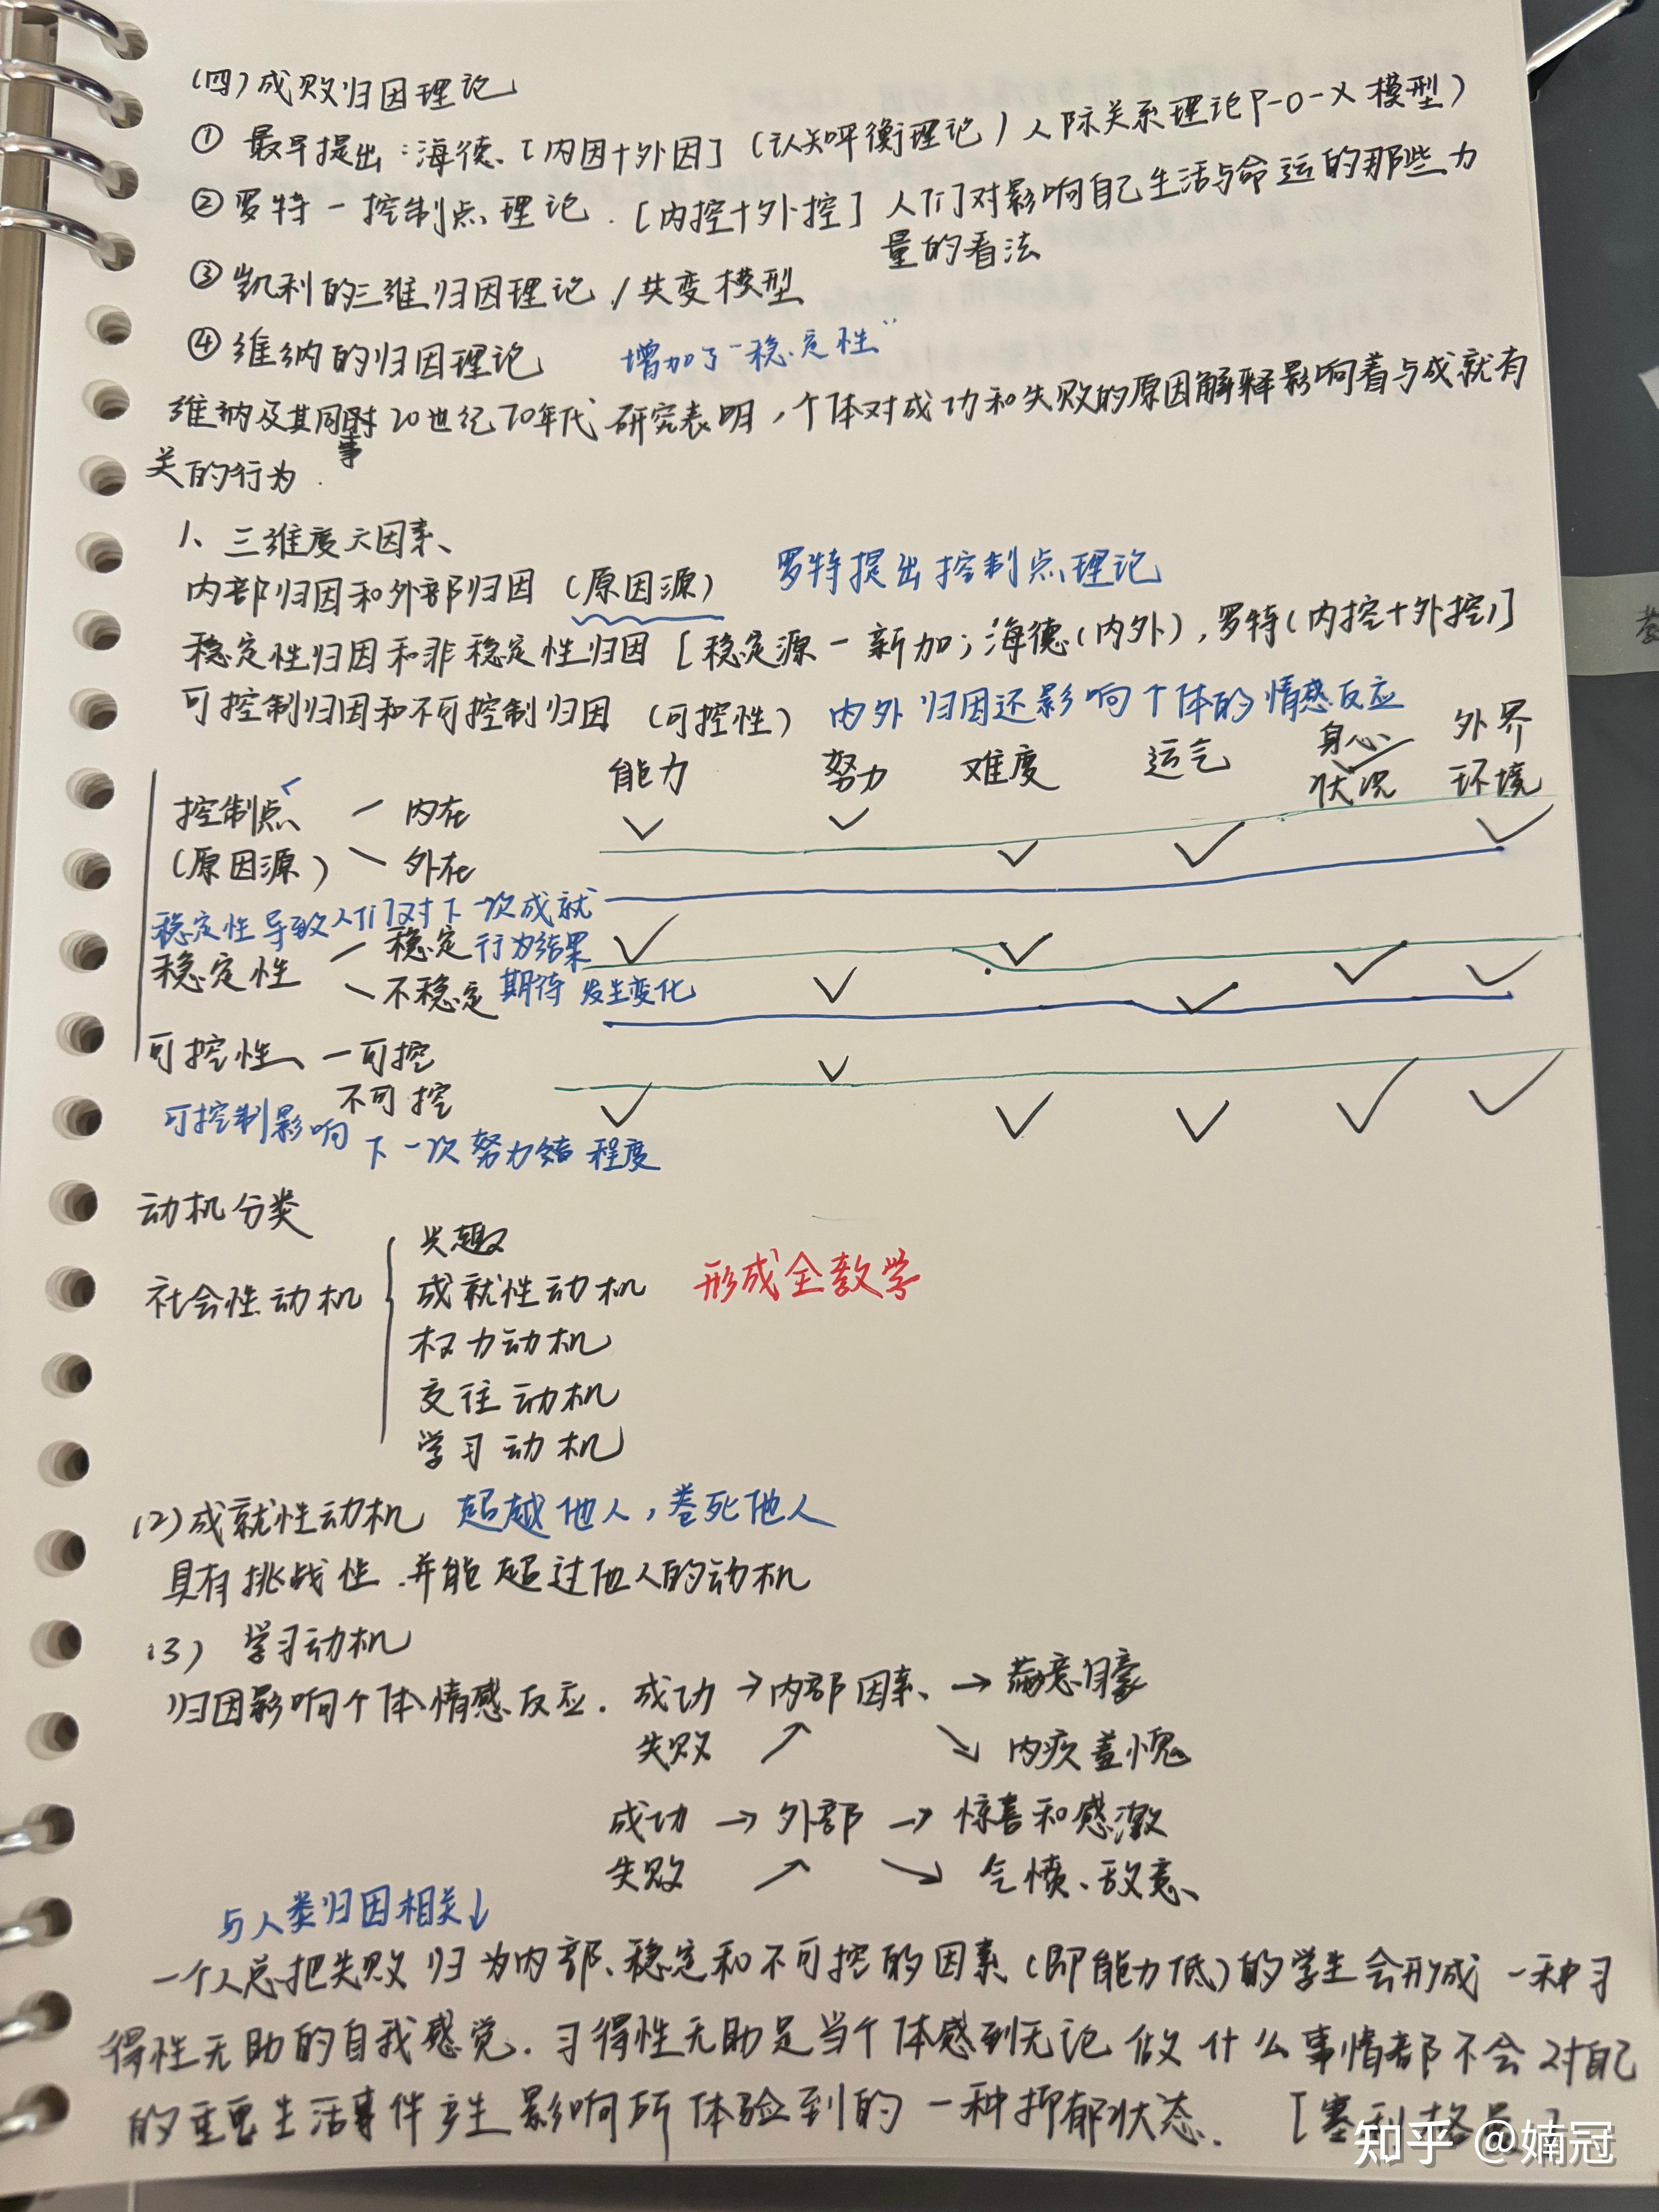 (四)成败归因理论
① 最早提出:海德.[内因+外因](认知平衡理论)人际关系理论P-O-X模型)
② 罗特-控制点理论.[内控+外控] 人们对影响自己生活与命运的那些力
量的看法
③ 凯利的三维归因理论/共变模型
④ 维纳的归因理论 增加了"稳定性"
维纳及其同事20世纪70年代研究表明,个体对成功和失败的原因解释影响着与成就有
关的行为.
1、三维度六因素、
内部归因和外部归因(原因源) 罗特提出控制点理论
稳定性归因和非稳定性归因[稳定源-新加;海德(内外),罗特(内控+外控)]
可控制归因和不可控制归因(可控性) 内外归因还影响个体的情感反应
能力 努力 难度 运气 身心状况 外界环境
控制点 - 内在 ✓ ✓
(原因源) - 外在 ✓ ✓ ✓
稳定性导致人们对下一次成就
稳定性 - 稳定 行为结果 ✓ ✓
不稳定 期待发生变化 ✓ ✓ ✓ ✓
可控性、-可控 ✓
不可控 ✓ ✓ ✓ ✓ ✓
可控制影响下一次努力 程度
动机分类
社会性动机
兴趣
成就性动机 形成全数学
权力动机
交往动机
学习动机
(2)成就性动机 超越他人,卷死他人
具有挑战性.并能超过他人的动机
(3) 学习动机
归因影响个体情感反应.成功→内部因素、→满意自豪
失败 ↗ ↘ 内疚羞愧
成功→外部→惊喜和感激
失败 ↗ ↘ 气愤、敌意、
与人类归因相关↓
一个人总把失败归为内部、稳定和不可控的因素(即能力低)的学生会形成一种习
得性无助的自我感觉.习得性无助是当个体感到无论做什么事情都不会对自己
的重要生活事件产生影响所体验到的一种抑郁状态.[塞利格曼]
知乎 @婻冠